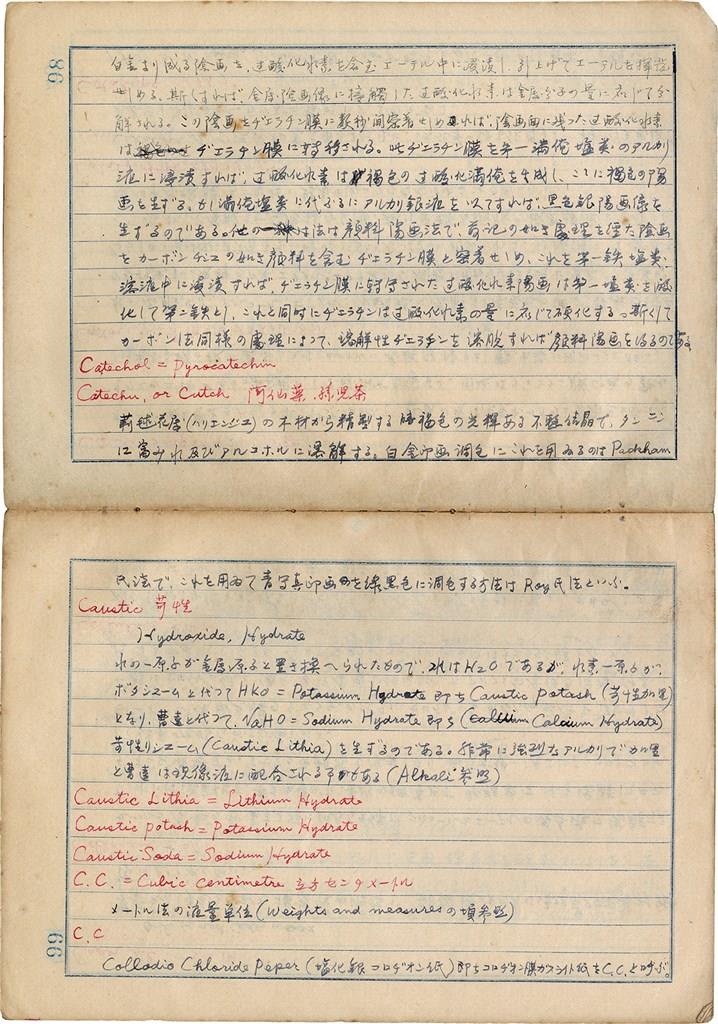 98
白金より成る陰画を、過酸化水素を含むエーテル中に浸漬し、引上げてエーテルを揮発
せしめる、斯くすれば、金属陰画像に接触した過酸化水素は金属分子の量に応じて分
解される。この陰画をヂエラチン膜に数秒間密着せしめれば、陰画面に残つた過酸化水素
は ヂエラチン膜に転移される。此ヂエラチン膜を第一満俺塩類のアルカリ
液に浸漬すれば、過酸化水素は褐色の過酸化満俺を生成し、こゝに褐色の陽
画を生ずる、かし満俺塩類に代ふるにアルカリ銀液を以てすれば、黒色銀陽画像を
生ずるのである。他の 法は顔料陽画法で、前記の如き處理を経た陰画
をカーボンヂユの如き顔料を含むヂエラチン膜と密着せしめ、これを第一鉄塩類
溶液中に浸漬すれば、ヂエラチン膜に転写された過酸化水素陽画は第一塩類を酸
化して第二鉄とし、これと同時にヂエラチンは過酸化水素の量に応じて硬化する。斯くして
カーボン法同様の處理によつて、溶解性ヂエラチンを溶脱すれば顔料陽画を得るのである。
Catechol = Pyrocatechin
Catechu, or Cutch 阿仙薬、孩児茶
(ハリエンジユ)の木材から精製する暗褐色の光輝ある不整結晶で、タンニン
に富み水及びアルコホルに溶解する。白金印画調色にこれを用ゐるのはPackham
氏法で、これを用ゐて青写真印画を緑黒色に調色する方法はRoy氏法といふ。
Caustic 苛性
Hydroxide, Hydrate
水の一原子が金属原子と置き換へられたもので、水はH2Oであるが、水素一原子が、
ポタシユームと代つてHKO = Potassium Hydrate 即ちCaustic potash (苛性加里)
となり、曹達と代つて、NaHO = Sodium Hydrate 即ち (Calcium Hydrate)
苛性リシユーム (Caustic Lithia) を生ずるのである。非常に強烈なアルカリで加里
と曹達は現像液に配合される事がある (Alkali 参照)
Caustic Lithia = Lithium Hydrate
Caustic potash = Potassium Hydrate
Caustic Soda = Sodium Hydrate
C.C. = Cubic Centimetre 立方センチメートル
メートル法の液量単位 (Weights and measuresの項参照)
C.C
Collodio Chloride Paper (塩化銀コロヂオン紙) 即ちコロヂオン膜 紙をC.C.と呼ぶ。
99